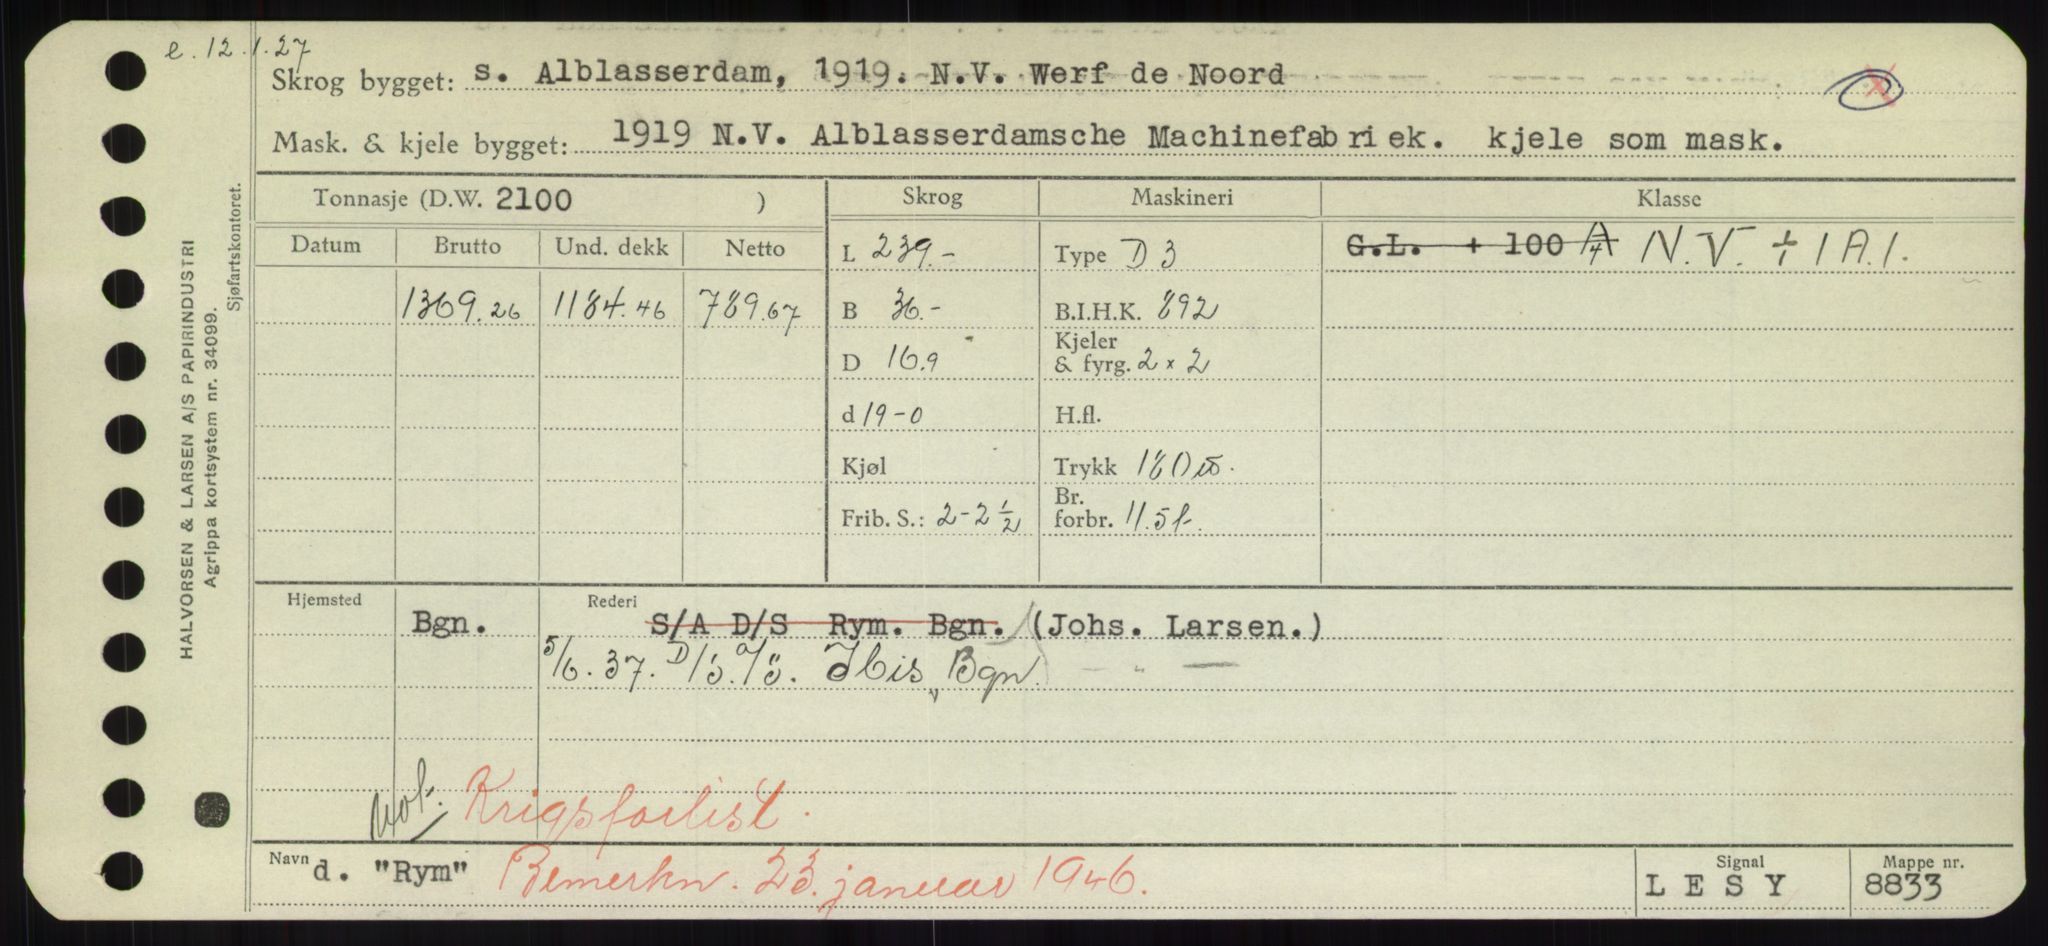 e. 12.1.27
Skrog bygget: s. Alblasserdam, 1919. N.V. Werf de Noord
Mask. & kjele bygget: 1919 N.V. Alblasserdamsche Machinefabriek. kjele som mask.
Tonnasje (D.W. 2100 ) Skrog Maskineri Klasse
Datum Brutto Und. dekk Netto L 239.- Type D 3 G.L. + 100 A/4 N.V. + 1 A.1.
1369.26 1184.46 789.67 B 36.- B.I.H.K. 892
D 16.9 Kjeler & fyrg. 2 x 2
d 19-0 H.fl.
Kjøl Trykk 180
Frib. S.: 2-2 1/2 Br. forbr. 11.5
Hjemsted Rederi
Bgn. S/A D/S Rym. Bgn. (Johs. Larsen.)
5/6. 37. D/S. A/S. Ibis, Bgn. - " -
Krigsforlist.
Navn d. "Rym" Bemerkn. 23. januar 1946. Signal LESY Mappe nr. 8833
HALVORSEN & LARSEN A/S PAPIRINDUSTRI
Agrippa kortsystem nr. 34099.
Sjøfartskontoret.